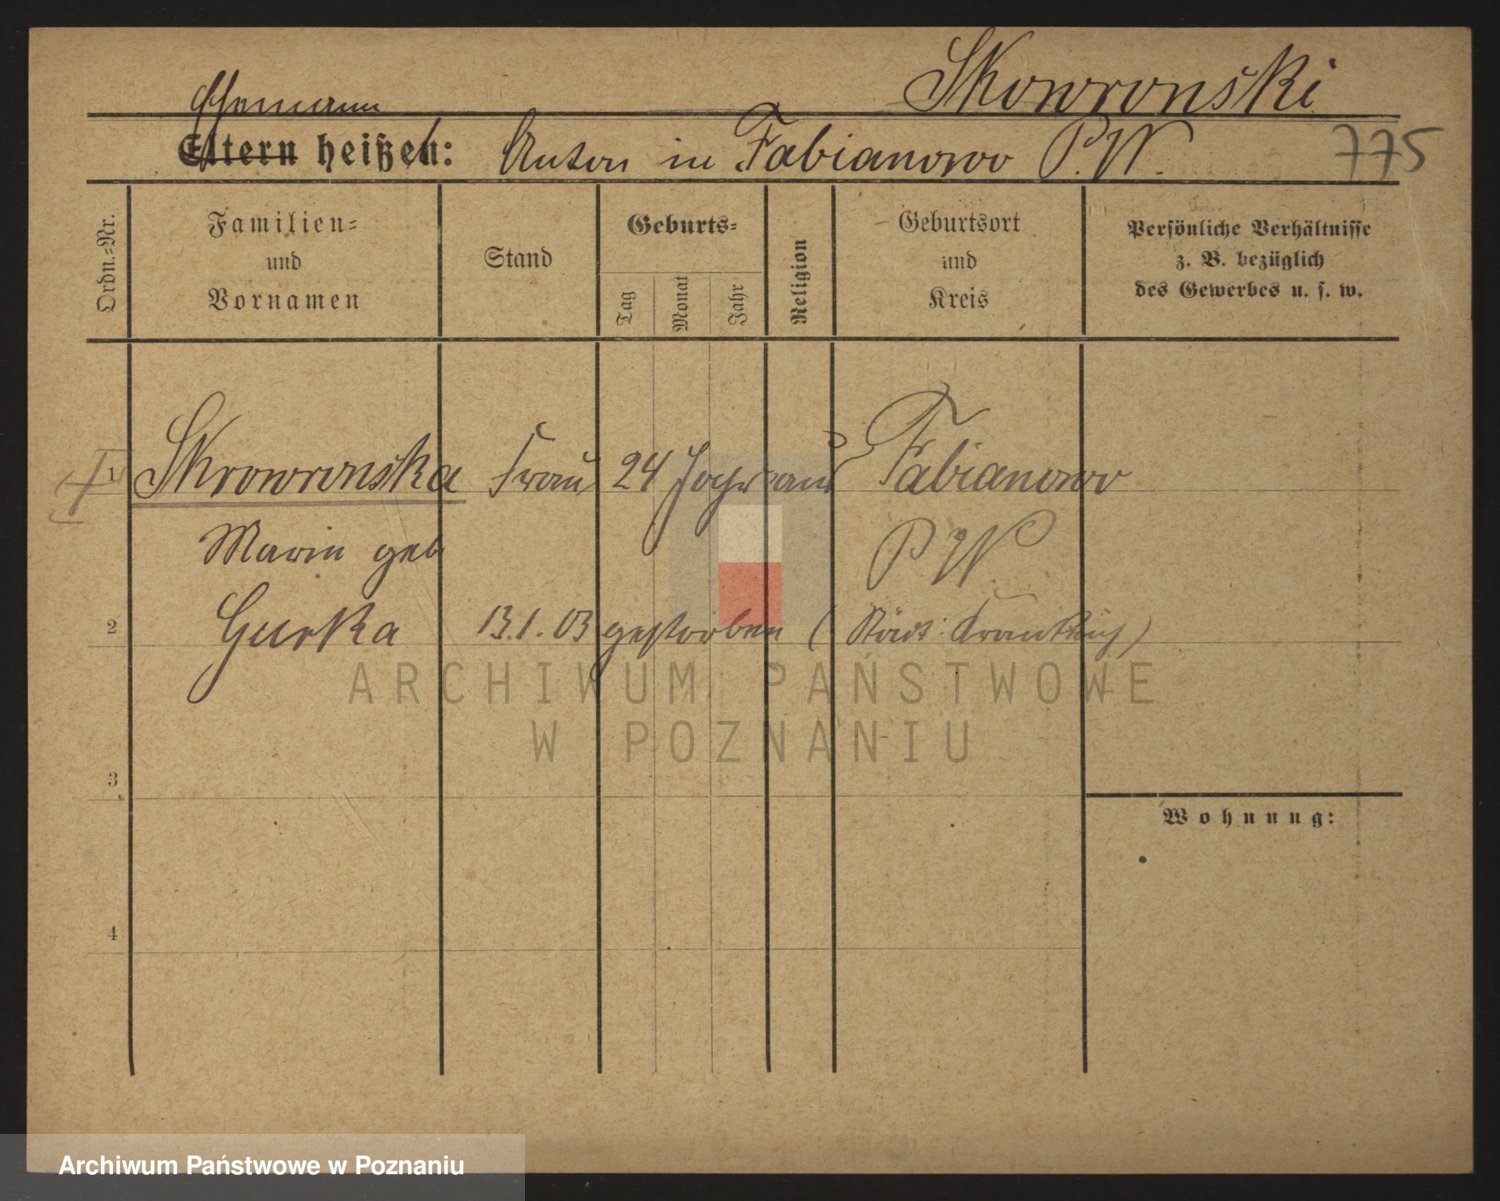 Skowronski
Ehemann
Eltern heißen: Anton in Fabianowo P.W.
775
Ordn.-Nr.
Familien-
und
Vornamen
Stand
Geburts-
Tag
Monat
Jahr
Religion
Geburtsort
und
Kreis
Persönliche Verhältnisse
z. B. bezüglich
des Gewerbes u. s. w.
1 Skrowronska Frau 24 Jahr aus Fabianowo
Marie geb P.W.
2 Gurka 13.1.03 gestorben (Städt.
ARCHIWUM PAŃSTWOWE
W POZNANIU
3
Wohnung:
4
Archiwum Państwowe w Poznaniu